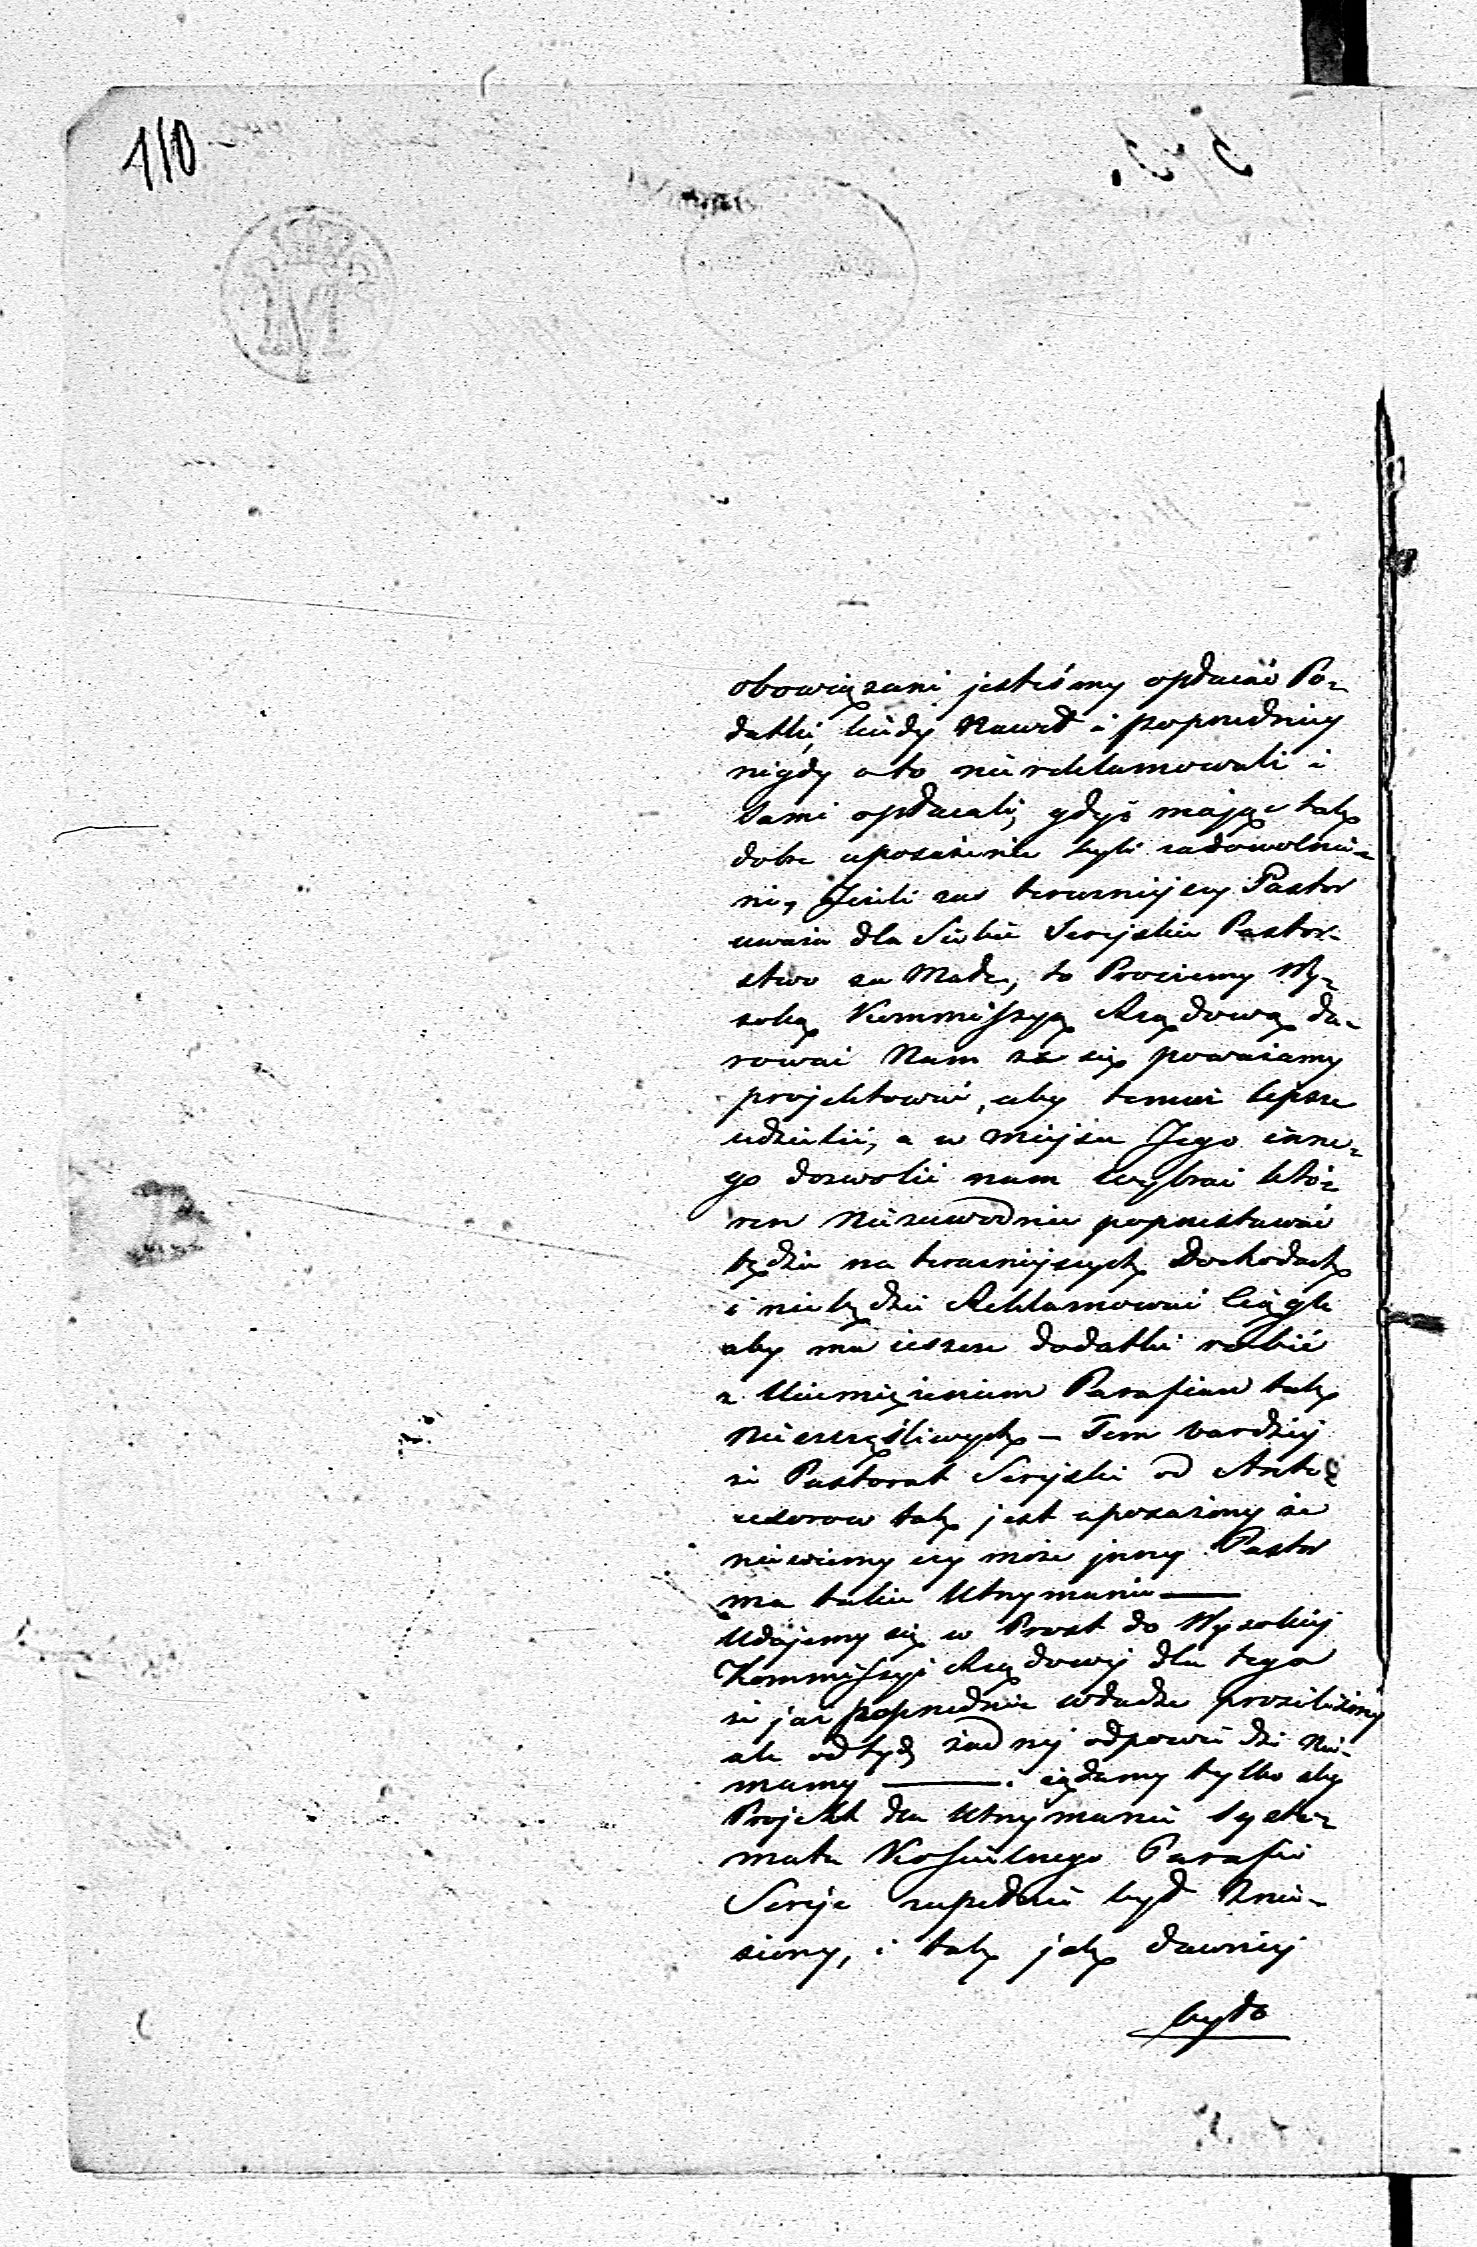 110
obowiązani jesteśmy opłacać Po-
datki, kiedy Nawet i poprzednicy
nigdy o to nie reklamowali i
sami opłacali, gdyż mając tak
dobre uposażenie byli zadowolnie-
ni, Jeżeli zas teraźniejszy Pastor
uważa dla Siebie Serejskie Pastor-
stwo za Małe, to Prosiemy Wy-
soką Kommissyą Rządową da-
rować Nam że się poważamy
projektować, aby temuż lepsze
udzielić, a w miejscu Jego inne-
go dozwolić nam wybrać któ-
ren Niezawodnie poprzestawać
będzie na teraźniejszych Dochodach
i niebędzie Reklamować Ciągle
aby mu ieszcze dodatki robić
z Uciemiężeniem Parafian tak
Nieszczęśliwych — Tem bardziej
że Pastorat Serejski od Ante-
cesorow tak jest uposażony że
niewiemy czy może jnny Pastor
ma takie Utrzymanie —
Udajemy się w Prost do Wysokiej
Kommissyi Rządowej dla tego
że już poprzednie władze prosiliśmy
ale odtyd żadnej odpowiedzi Nie-
mamy — . żądamy tylko aby
Projekt dla Utrzymania syste-
matu Kościelnego Parafii
Sereje zupełnie był Znie-
siony, i tak jak dawniej
było